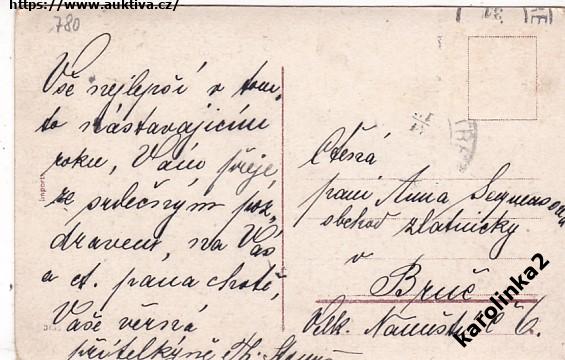 https://www.auktiva.cz/
780
Vše nejlepší v tom,
to nastávajícím
roku, Vám přeje
ze srdečným poz,
dravem, na Vás
a ct. pana chotě,
Vaše věrná
přítelkyně Th.
Import
Ctěná
paní Anna
obchod zlatnický
v
Bruč
Velk. Náměstí č 6.
karolinka2